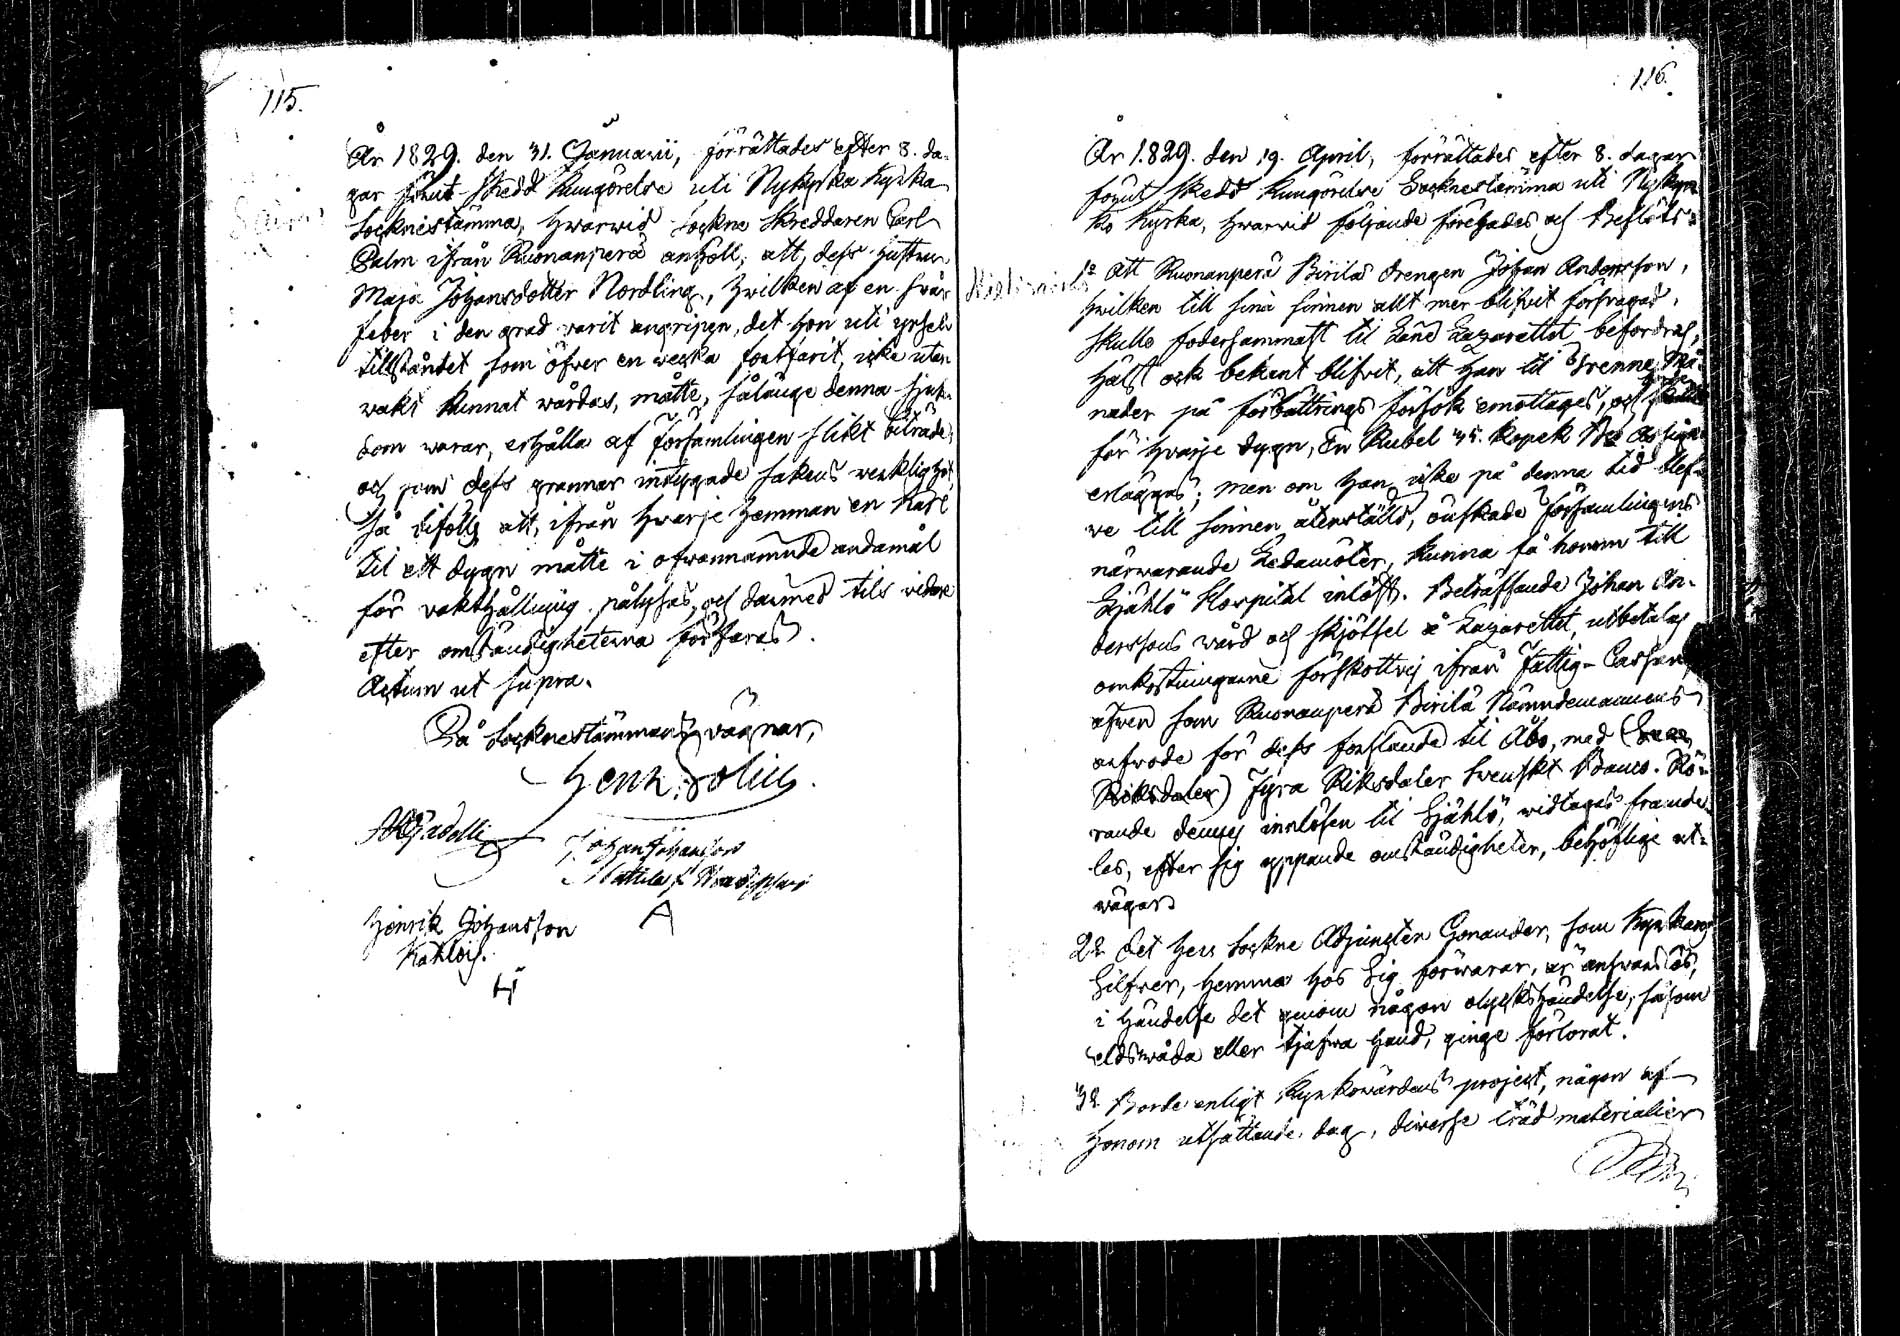 115.
År 1829. den 31. Januarii, förrättades efter 8. da-
gar förut skedd kungörelse uti Nykyrka Kyrka
Socknestämma, hwarwid Sockne Skreddaren Carl
Palm ifrån Ruonanperä anhöll, att, dess hustru
Maja Johansdotter Nordling, hwilken af en swår
feber i den grad varit angripen, det hon uti yrsel
tillståndet som öfver en wecka fortfarit, icke utan
wakt kunnat wårdas, måtte, sålänge denna sjuk-
dom warar, erhålla af Församlingen slikt biträde,
och som dess grannar intygade sakens werklighet,
så bifölls att, ifrån hwarje hemman en karl
til ett dygn måtte i ofwannämnde ändamål
för vakthållning pålysas, och därmed tils vidare
efter omständigheterna förfaras.
Actum ut supra.
På Socknestämmans vägnar,
Henr: Polin.
Johan Johansson
Henrik Johansson
Kahlois.
116.
År 1829. den 19. April, förrättades efter 8. dagar
förut skedd kungörelse Socknestämma uti Nykyr-
ko Kyrka, hwarwid följande förehades och Beslöts:
1o Att Ruonanperä Birilas drengen Johan Andersson,
hwilken till sina sinnen allt mer blifvit försvagad,
skulle fodersammast til Länd Lazarettet befordras,
hälst ock bekant blifvit, att han til Trenne Må-
nader på förbättrings försök emottages, och
för hwarje dygn, En Rubel 35. kopek Bco Assign:
erläggas; men om han icke på denna tid blef-
ve till sinnen återställd, önskade Församlingens
närwarande Ledamöter, kunna få honom till
Själlö Hospital inlöst. Beträffande Johan An-
derssons wård och skjötsel å Lazarettet, utbetalas
omkostningarne förskottvis ifrån Fattig-Cassan,
äfwen som Ruonanperä Birilä Nämndemannens
arfwode för dess forslande til Åbo, med
Riksdaler) Fyra Riksdaler Swenskt Banco. Rö-
rande dennes innlösen til Själlö, widtages framde-
les, efter sig yppande omständigheter, behöflige ut-
wägar.
2o det Herr Sockne Adjuncten Gonander, som Kyrkans
Silfver, hemma hos Sig förwarar, är answarslös,
i händelse det genom någon olyckshändelse, såsom
eldswåda eller tjufwa hand, ginge förlorat.
3o Borde enligt Kyrkowärdens project, någon af
honom utsättande dag, diverse träd materialier